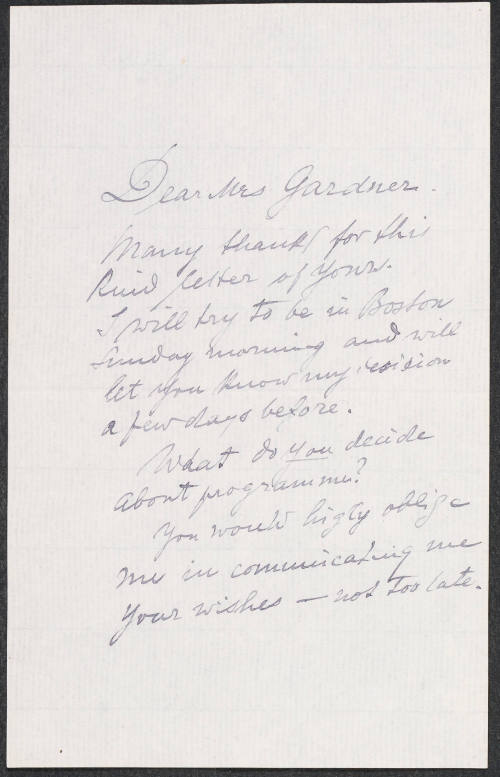 Dear Mrs Gardner.
Many thanks for this
kind letter of yours.
I will try to be in Boston
Sunday morning and will
let you know my decision
a few days before.
What do you decide
about programme?
You would higly oblige
me in communicating me
your wishes — not too late.